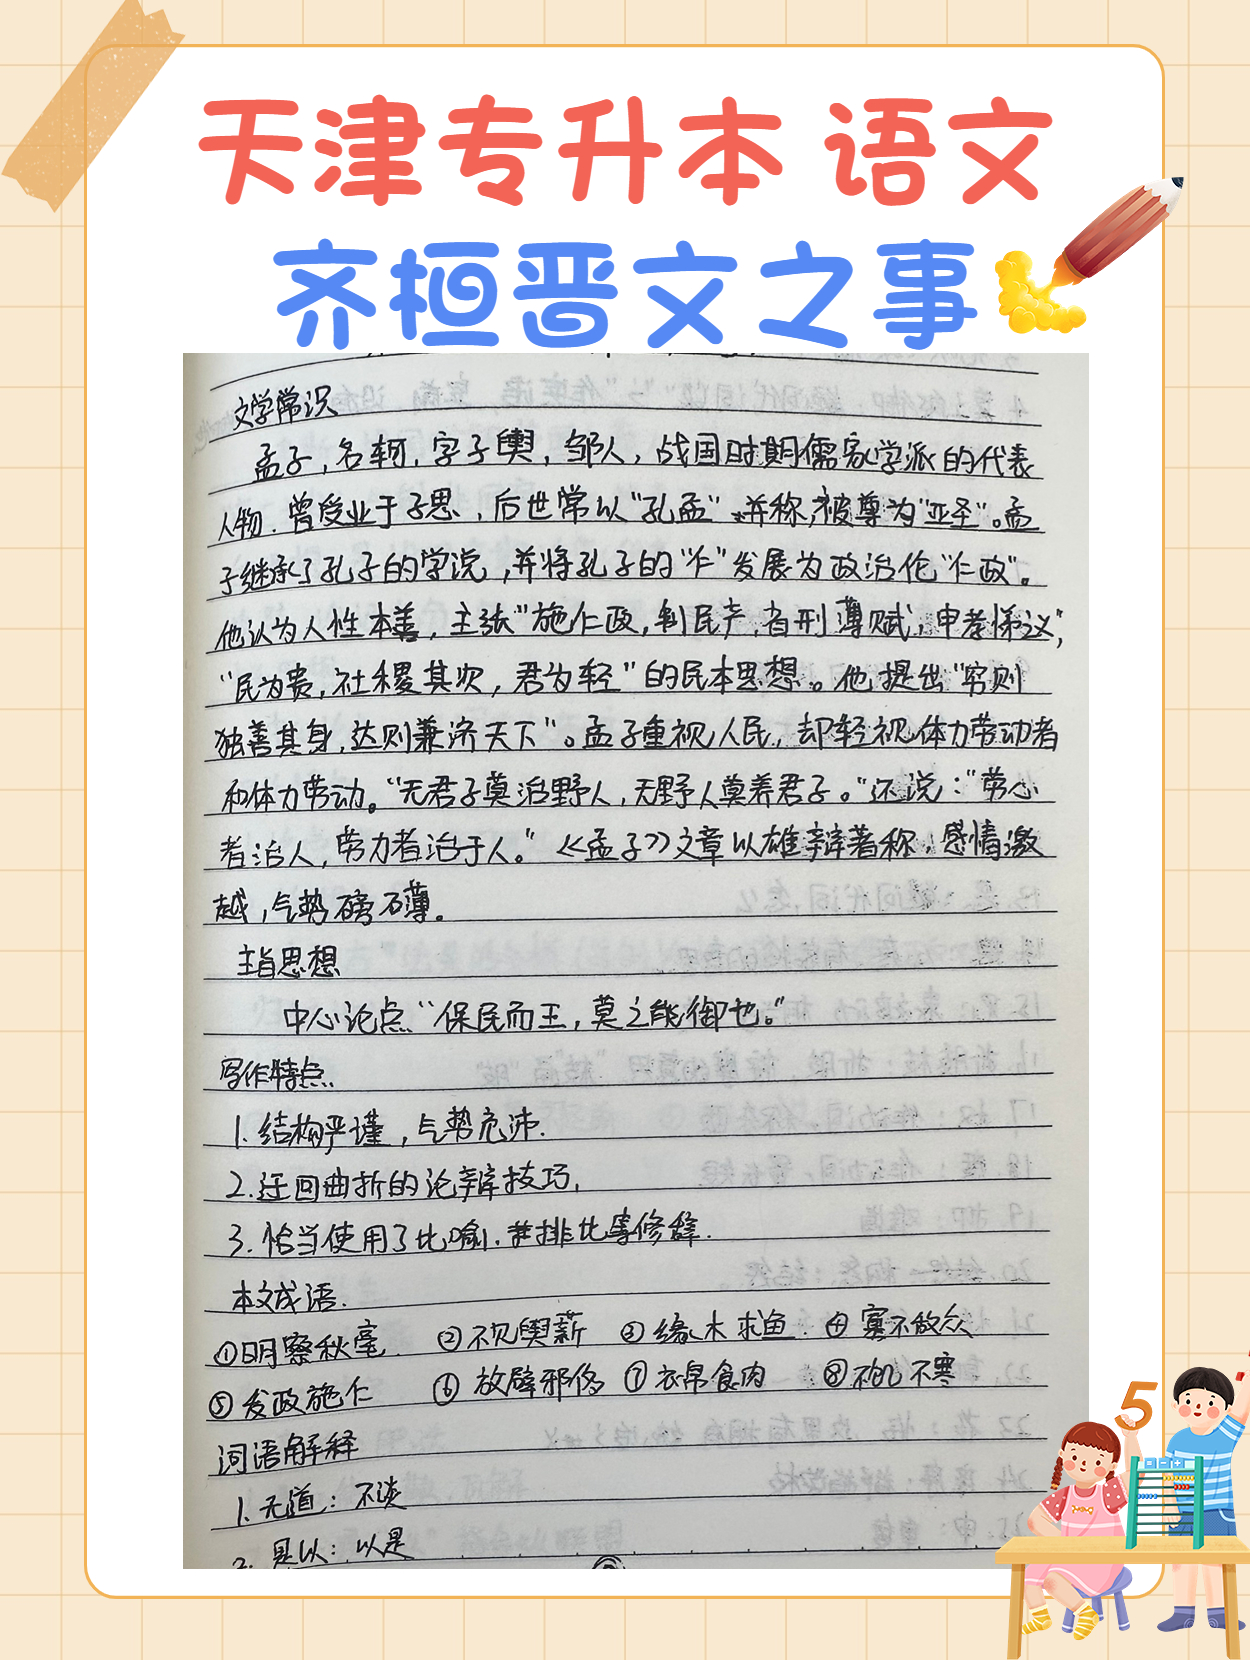 天津专升本 语文
齐桓晋文之事
文学常识
孟子，名轲，字子舆，邹人，战国时期儒家学派的代表
人物．曾受业于子思，后世常以"孔孟"并称，被尊为"亚圣"。孟
子继承了孔子的学说，并将孔子的"仁"发展为政治伦"仁政"。
他认为人性本善，主张"施仁政，制民产，省刑薄赋，申孝悌之义"，
"民为贵，社稷其次，君为轻"的民本思想。他提出"穷则
独善其身，达则兼济天下"。孟子重视人民，却轻视体力劳动者
和体力劳动。"无君子莫治野人，无野人莫养君子。"还说："劳心
者治人，劳力者治于人。"《孟子》文章以雄辩著称，感情激
越，气势磅礴。
主旨思想
中心论点"保民而王，莫之能御也。"
写作特点．
1.结构严谨，气势充沛．
2.迂回曲折的论辩技巧，
3.恰当使用了比喻．排比等修辞．
本文成语．
①明察秋毫 ②不见舆薪 ③缘木求鱼 ④寡不敌众
⑤发政施仁 ⑥放辟邪侈 ⑦衣帛食肉 ⑧不饥不寒
词语解释
1.无道：不谈
2.是以：以是
5